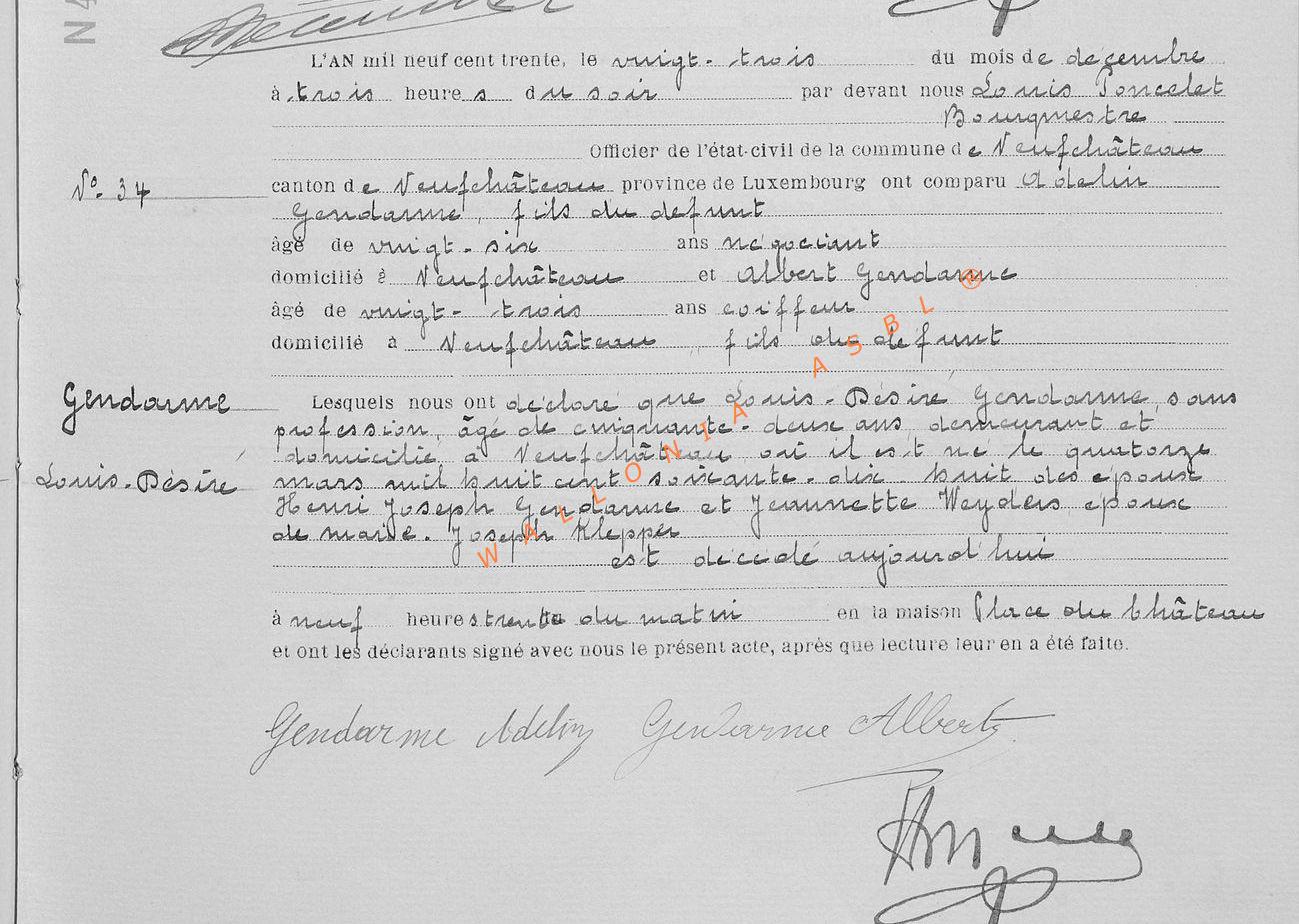 L'AN mil neuf cent trente, le vingt-trois du mois de décembre
à trois heures du soir par devant nous Louis Poncelet
Bourgmestre
Officier de l'état-civil de la commune de Neufchâteau
N° 34
canton de Neufchâteau province de Luxembourg ont comparu Adelin
Gendarme, fils du défunt
âgé de vingt-six ans négociant
domicilié à Neufchâteau et Albert Gendarme
âgé de vingt-trois ans coiffeur
domicilié à Neufchâteau, fils du défunt
Gendarme
Louis-Désiré
Lesquels nous ont déclaré que Louis-Désiré Gendarme, sans
profession, âgé de cinquante-deux ans, demeurant et
domicilié à Neufchâteau où il est né le quatorze
mars mil huit cent soixante-dix-huit des époux
Henri Joseph Gendarme et Jeannette Weyders époux
de Joseph Klepper
est décédé aujourd'hui
à neuf heures trente du matin en la maison Place du Château
et ont les déclarants signé avec nous le présent acte, après que lecture leur en a été faite.
Gendarme Adelin Gendarme Albert
WALLONIA ASBL ®